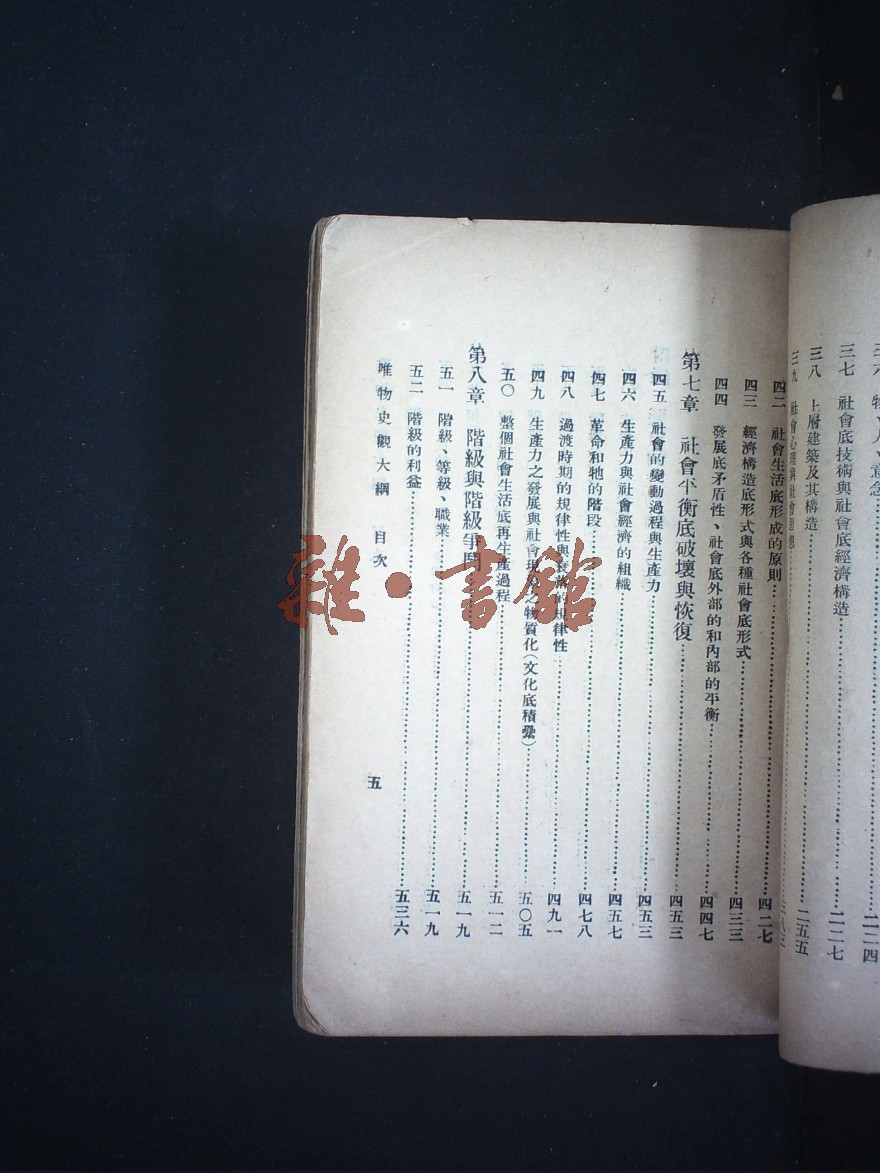 三七 社會底技術與社會底經濟構造……二二七
三八 上層建築及其構造……二五五
三九 社會心理與社會思想
四二 社會生活底形成的原則……四二七
四三 經濟構造底形式與各種社會底形式……四三三
四四 發展底矛盾性、社會底外部的和內部的平衡……四四七
第七章 社會平衡底破壞與恢復……四五三
四五 社會的變動過程與生產力……四五三
四六 生產力與社會經濟的組織……四五七
四七 革命和牠的階段……四七八
四八 過渡時期的規律性與衰落的規律性……四九一
四九 生產力之發展與社會現象之物質化（文化底積纍）……五〇五
五〇 整個社會生活底再生產過程……五一二
第八章 階級與階級爭鬥……五一九
五一 階級、等級、職業……五一九
五二 階級的利益……五三六
唯物史觀大綱 目次 五
雜·書館